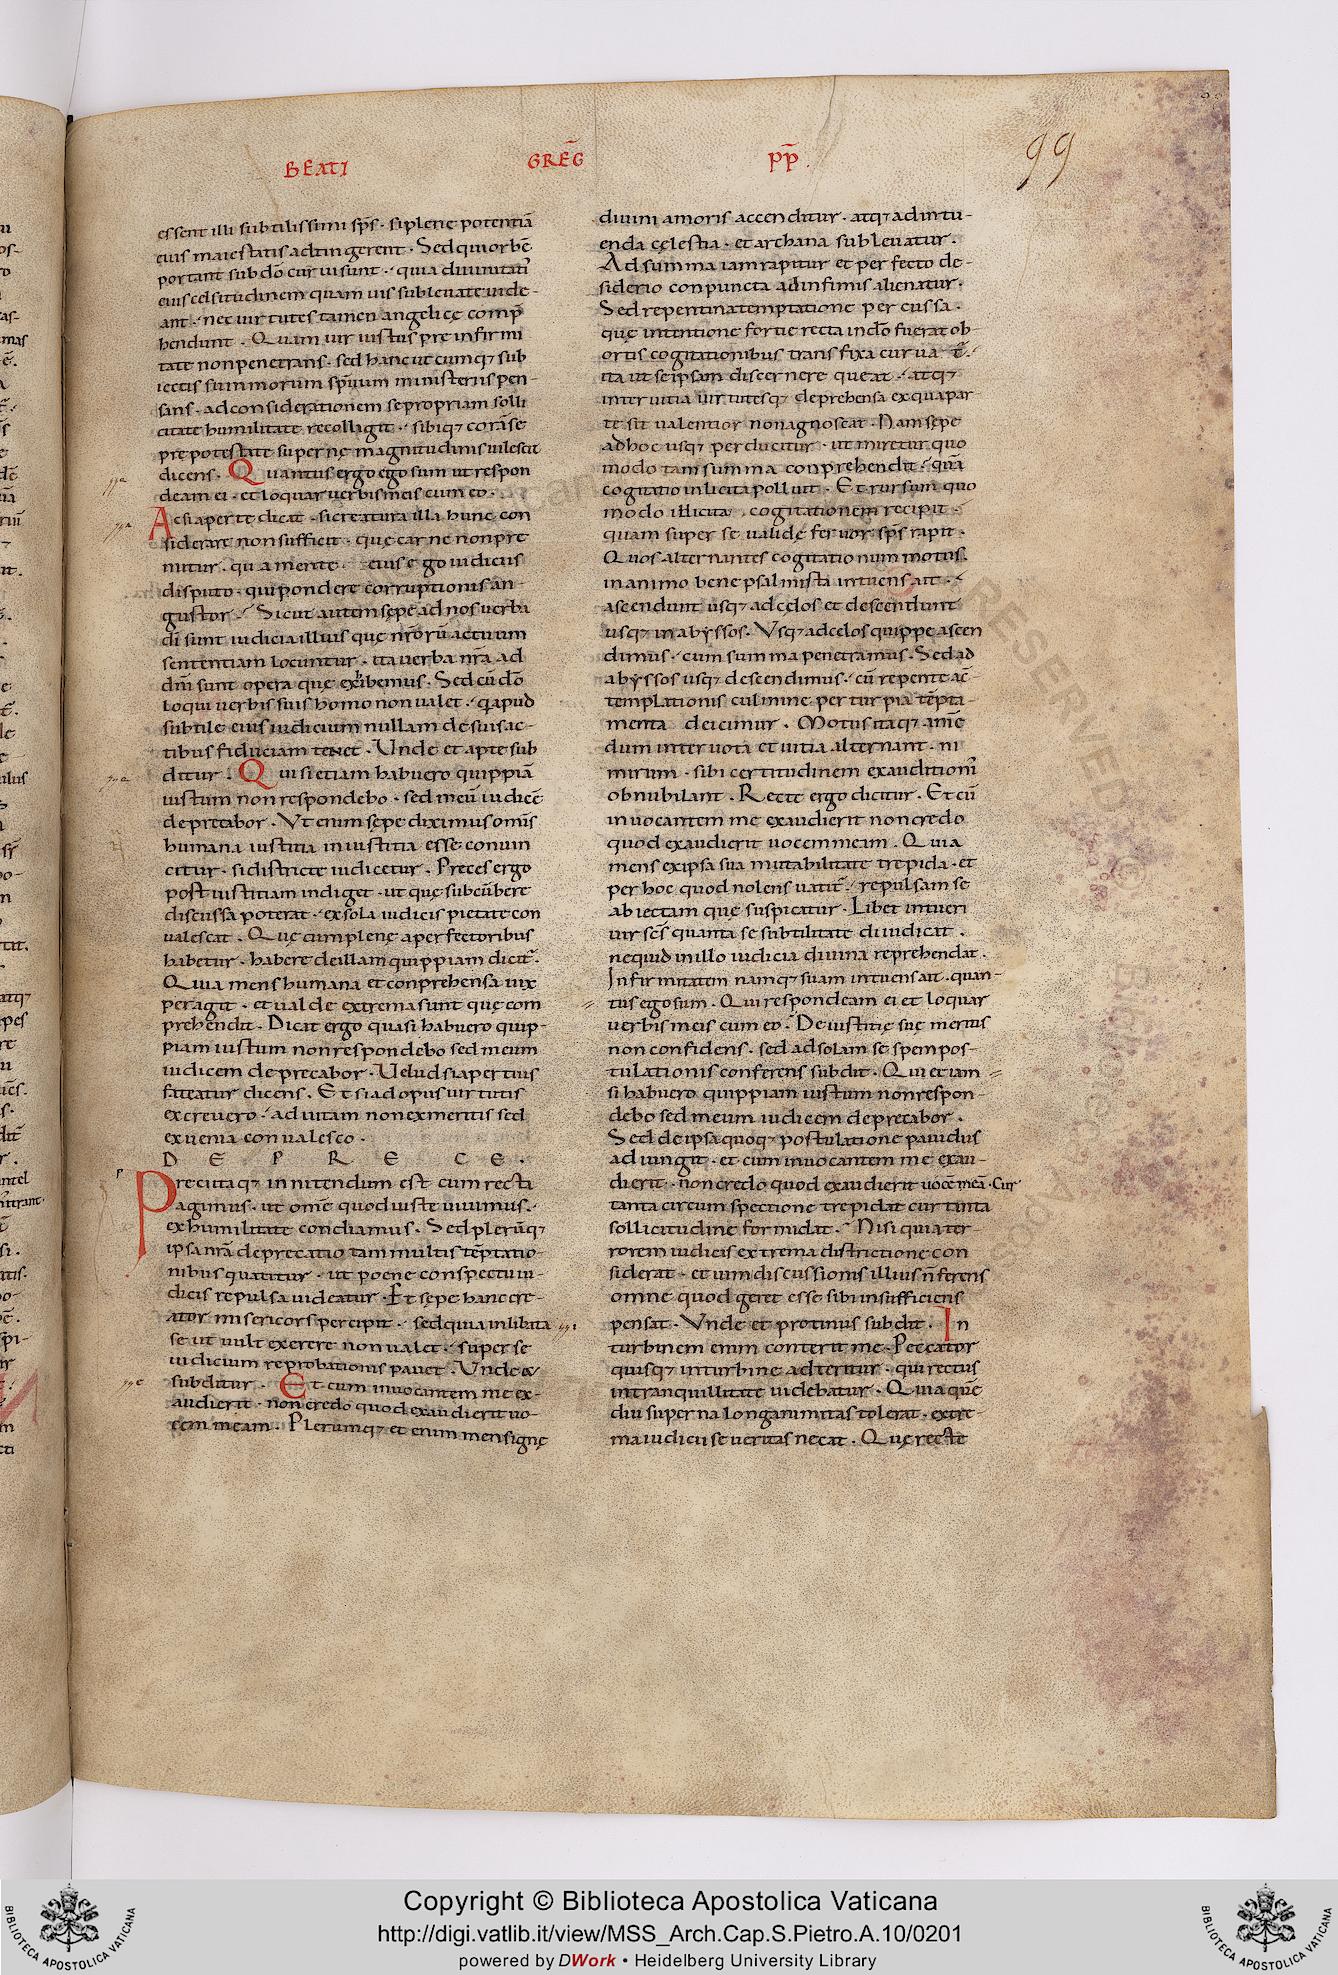 BEATI GREḠ P̄P̄.
99
essent illi subtilissimi sp̄s · si plene potentiā
eius maiestatis adtingerent · Sed qui orbē
portant sub dō curuisunt · quia diuinitatī
eius celsitudinem quamuis subleuate uide-
ant · nec uirtutes tamen angelicę comp̄
hendunt · Quam uir iustus pre infirmi
tate non penetrans · sed hanc utcumq; sub
iectis summorum sp̄uum ministeriis pen-
sans · ad considerationem se propriam solli
citate humilitate recolligit · sibiq; corā se
pre potestate supernę magnitudinis uilescit
dicens · Quantus ergo ego sum ut respon
deam ei · et loquar uerbis meis cum eo ·
Ac si aperte dicat · si creatura illa hunc con
siderare non sufficit · quę carne non pre
mitur · qua mente eius ego iudicius
disputo · qui pondere corruptionis an-
gustor · Sicut autem sępe ad nos uerba
dī sunt iudicia illius quę nr̄orū actuum
sententiam locuntur · ita uerba nr̄a ad
dm̄ sunt opera que exibemus · Sed cū dō
loqui uerbis suis homo non ualet · q̄ apud
subtile eius iudicium nullam de suis ac-
tibus fiduciam tenet · Unde et apte sub
ditur · Qui si etiam habuero quippiā
iustum non respondebo · sed meū iudicē
deprecabor · Ut enim sępe diximus omīs
humana iustitia iniustitia esse conuin
citur · si districte iudicetur · Preces ergo
post iustitiam indiget · ut quę subcūbere
discussa poterat · ex sola iudicis pietate con
ualescat · Quę cum plenę a perfectoribus
habetur · habere de illam quippiam dicit̄ ·
Quia mens humana et conprehensa uix
peragit · et ualde extrema sunt quę com
prehendit · Dicat ergo quasi habuero quip-
piam iustum non respondebo sed meum
iudicem deprecabor · Uelud si apertius
fateatur dicens · Et si ad opus uirtutis
excreuero · ad uitam non ex meritis sed
ex uenia conualesco ·
D E P R E C E ·
Preci itaq; innitendum est cum recta
agimus · ut omē quod iuste uiuimus ·
ex humilitate condiamus · Sed plerūq;
ipsa nr̄a deprecatio tam multis tēptatio
nibus quatitur · ut poene conspectu iu-
dicis repulsa uideatur · Et sępe hanc cre-
ator misericors percipit · sed quia inlibata
se ut uult exerere non ualet · super se
iudicium reprobationis pauet · Unde &
subditur · Et cum inuocantem me ex-
audierit · non credo quod exaudierit uo-
cem meam · Plerumq; et enim mens igne
diuini amoris accenditur · atq; ad intu-
enda cęlestia · et archana subleuatur ·
Ad summa iam rapitur et perfecto de-
siderio conpuncta ad infimis alienatur ·
Sed repentina temptatione percussa ·
quę intentione fortie recta in dō fuerat ob
ortis cogitationibus transfixa curuat̄ ·
ita ut se ipsam discernere queat · atq;
inter uitia uirtutesq; deprehensa ex qua par
te sit ualentior non agnoscat · Nam sepe
ad hoc usq; perducitur · ut miretur quo
modo tam summa conprehendit · quā
cogitatio inlicita polluit · Et rursum quo
modo illicita cogitationem recipit ·
quam super se ualidę feruor sp̄s rapit ·
Quos alternantes cogitationum motus
in animo bene psalmista intuens ait ·
ascendunt usq; ad cęlos et descendunt
usq; in abyssos · Usq; ad celos quippe ascen
dimus · cum summa penetramus · Sed ad
abyssos usq; descendimus · cū repente a c̄
templationis culmine per turpia tēpta-
menta deicimur · Motus itaq; amē
dum inter uota et uitia alternant · ni
mirum · sibi certitudinem exauditionī
obnubilant · Recte ergo dicitur · Et cū
inuocantem me exaudierit non credo
quod exaudierit uocem meam · Quia
mens ex ipsa sua mutabilitate trepida · et
per hoc quod nolens uatit̄ · repulsam se
abiectam que suspicatur · Libet intueri
uir scs̄ quanta se subtilitate diiudicat ·
ne quid in illo iudicia diuina reprehendat ·
Infirmitatem namq; suam intuens ait · quan-
tus ego sum · Qui respondeam ei et loquar
uerbis meis cum eo · De iustitię suę meritis
non confidens · sed ad solam se spem pos-
tulationis conferens subdit · Qui etiam
si habuero quippiam iustum non respon-
debo sed meum iudicem deprecabor ·
Sed de ipsa quoq; postulatione pauidus
adiungit · et cum inuocantem me exau-
dierit · non credo quod exaudierit uocē meā · Cur
tanta circumspectione trepidat cur tanta
sollicitudine formidat · Nisi quia ter-
rorem iudicis extrema districtione con
siderat · et uim discussionis illius n̄ ferens
omne quod geret esse sibi insufficiens
pensat · Unde et protinus subdit · In
turbinem enim conterit me · Peccator
quisq; in turbine adteritur · qui rectus
in tranquillitate uidebatur · Quia quē
diu superna longanimitas tolerat · extre-
ma iudicii seueritas necat · Quę recte
Copyright © Biblioteca Apostolica Vaticana
http://digi.vatlib.it/view/MSS_Arch.Cap.S.Pietro.A.10/0201
powered by DWork • Heidelberg University Library
BIBLIOTECA APOSTOLICA VATICANA
BIBLIOTECA APOSTOLICA VATICANA